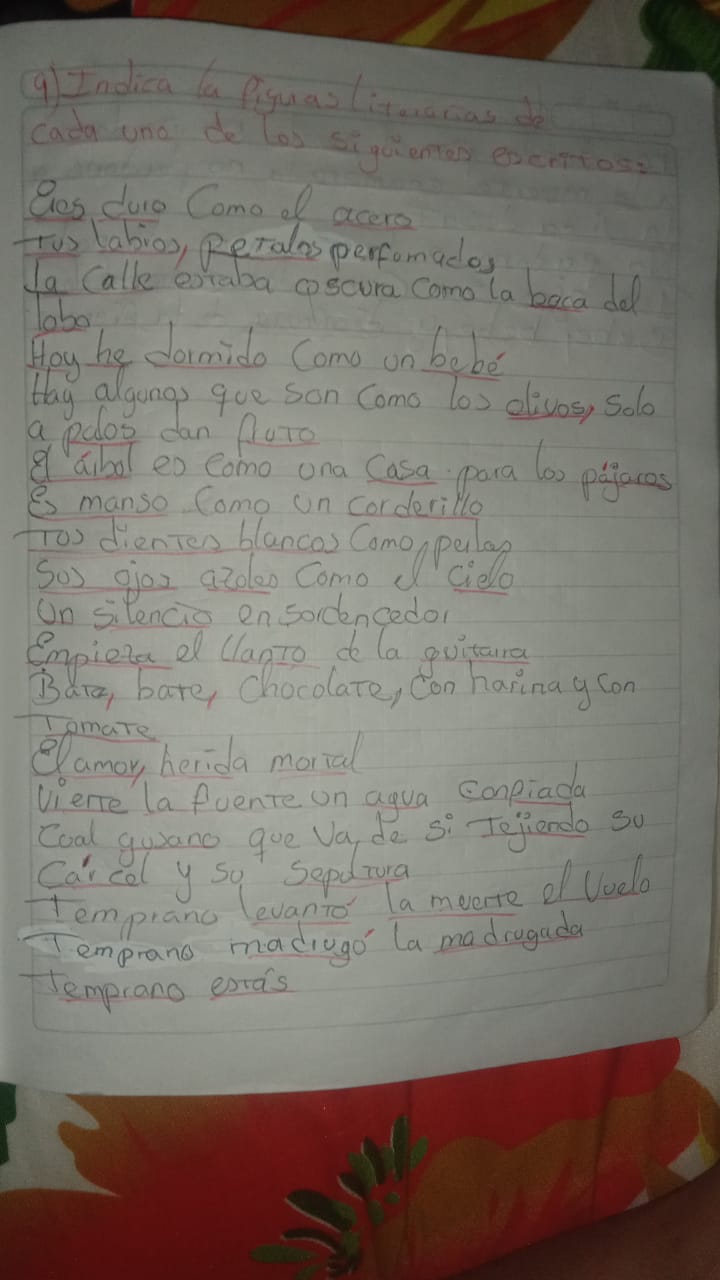 9) Indica la figuras literarias de
cada uno de los siguientes escritos:
Eres duro Como el acero
Tus labios, Petalos perfumados
La Calle estaba oscura Como la boca del
lobo
Hoy he dormido Como un bebé
Hay algunos que son Como los olivos, Solo
a palos dan fruto
El árbol es Como una Casa para los pájaros
Es manso Como un corderillo
Tus dientes blancos Como perlas
Sus ojos azules Como el cielo
Un silencio ensordencedor
Empieza el llanto de la guitarra
Bate, bate, Chocolate, Con harina y Con
Tomate
El amor, herida mortal
Vierte la fuente un agua Confiada
Cual gusano que Va, de si Tejiendo su
Cárcel y su Sepultura
Temprano levantó la muerte el Vuelo
Temprano madrugó la madrugada
Temprano estás